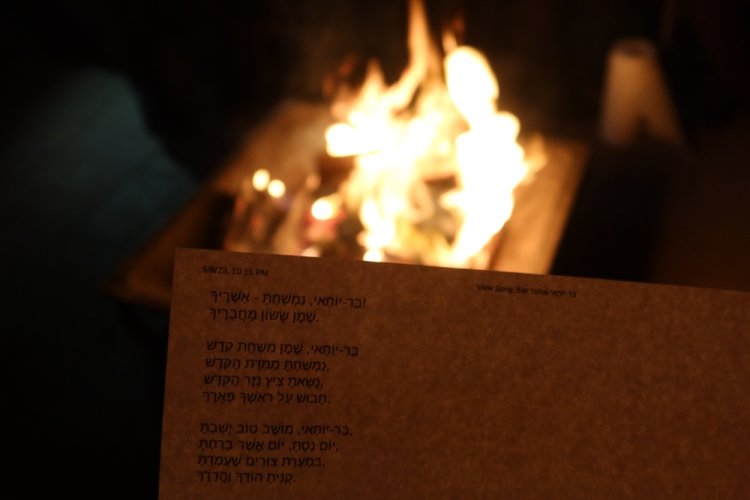 5/8/23, 10:15 PM
View Song: Bar Yohai בר יוחאי
בַּר-יוֹחַאי, נִמְשַׁחְתָּ - אַשְׁרֶיךָ!
שֶׁמֶן שָׂשׂוֹן מֵחֲבֵרֶיךָ.
בַּר-יוֹחַאי, שֶׁמֶן מִשְׁחַת קֹדֶשׁ
נִמְשַׁחְתָּ מִמִּדַּת הַקֹּדֶשׁ,
נָשָׂאתָ צִיץ נֵזֶר הַקֹּדֶשׁ
חָבוּשׁ עַל רֹאשְׁךָ פְּאֵרֶךָ.
בַּר-יוֹחַאי, מוֹשַׁב טוֹב יָשַׁבְתָּ,
יוֹם נַסְתָּ, יוֹם אֲשֶׁר בָּרַחְתָּ,
בִּמְעָרַת צוּרִים שֶׁעָמַדְתָּ,
קָנִיתָ הוֹדְךָ וַהֲדָרֶךָ.